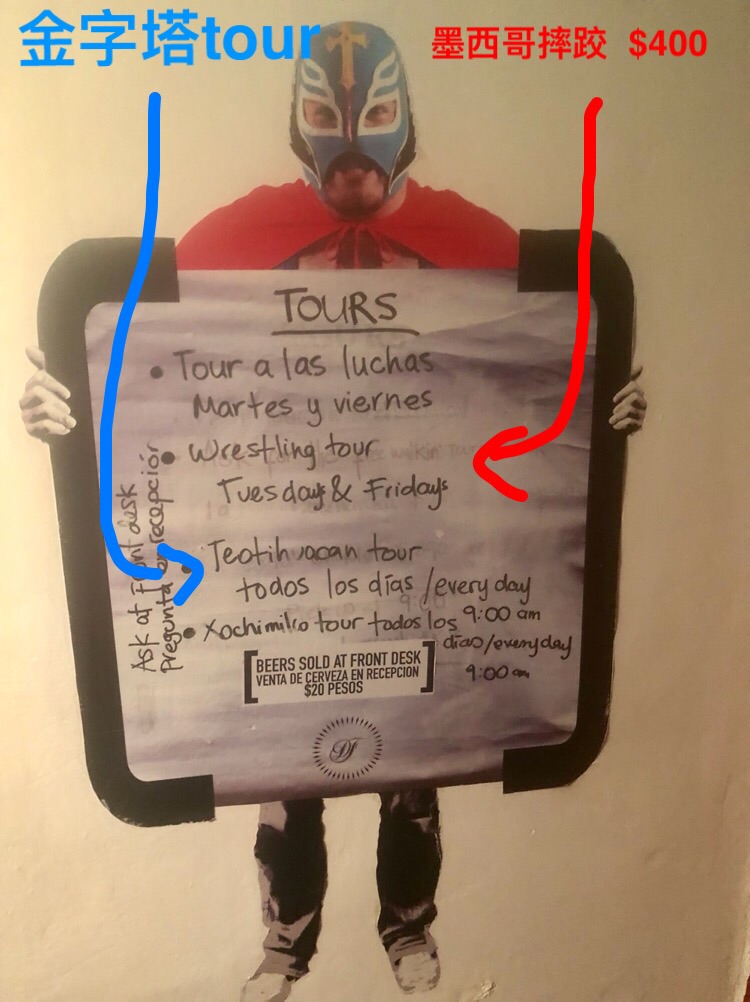 金字塔tour
墨西哥摔跤 $400
TOURS
• Tour a las luchas
Martes y viernes
• Wrestling tour
Tuesdays & Fridays
Teotihuacan tour
todos los días / every day
9:00 am
• Xochimilco tour todos los
días / everyday
9:00 am
Ask at Front desk
Pregunta en recepción
BEERS SOLD AT FRONT DESK
VENTA DE CERVEZA EN RECEPCION
$20 PESOS
DF